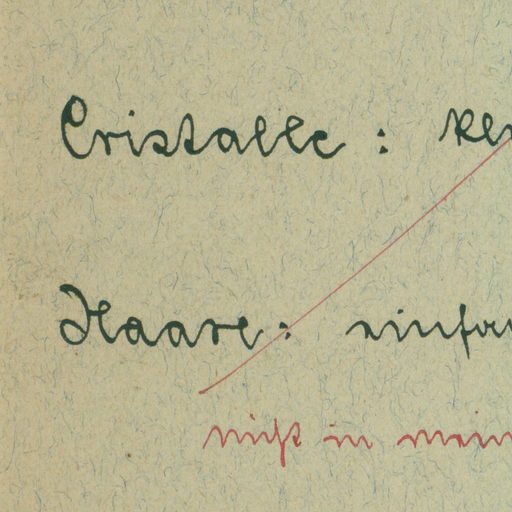 Cristalle : kl
Haare : einfa
nicht in mein